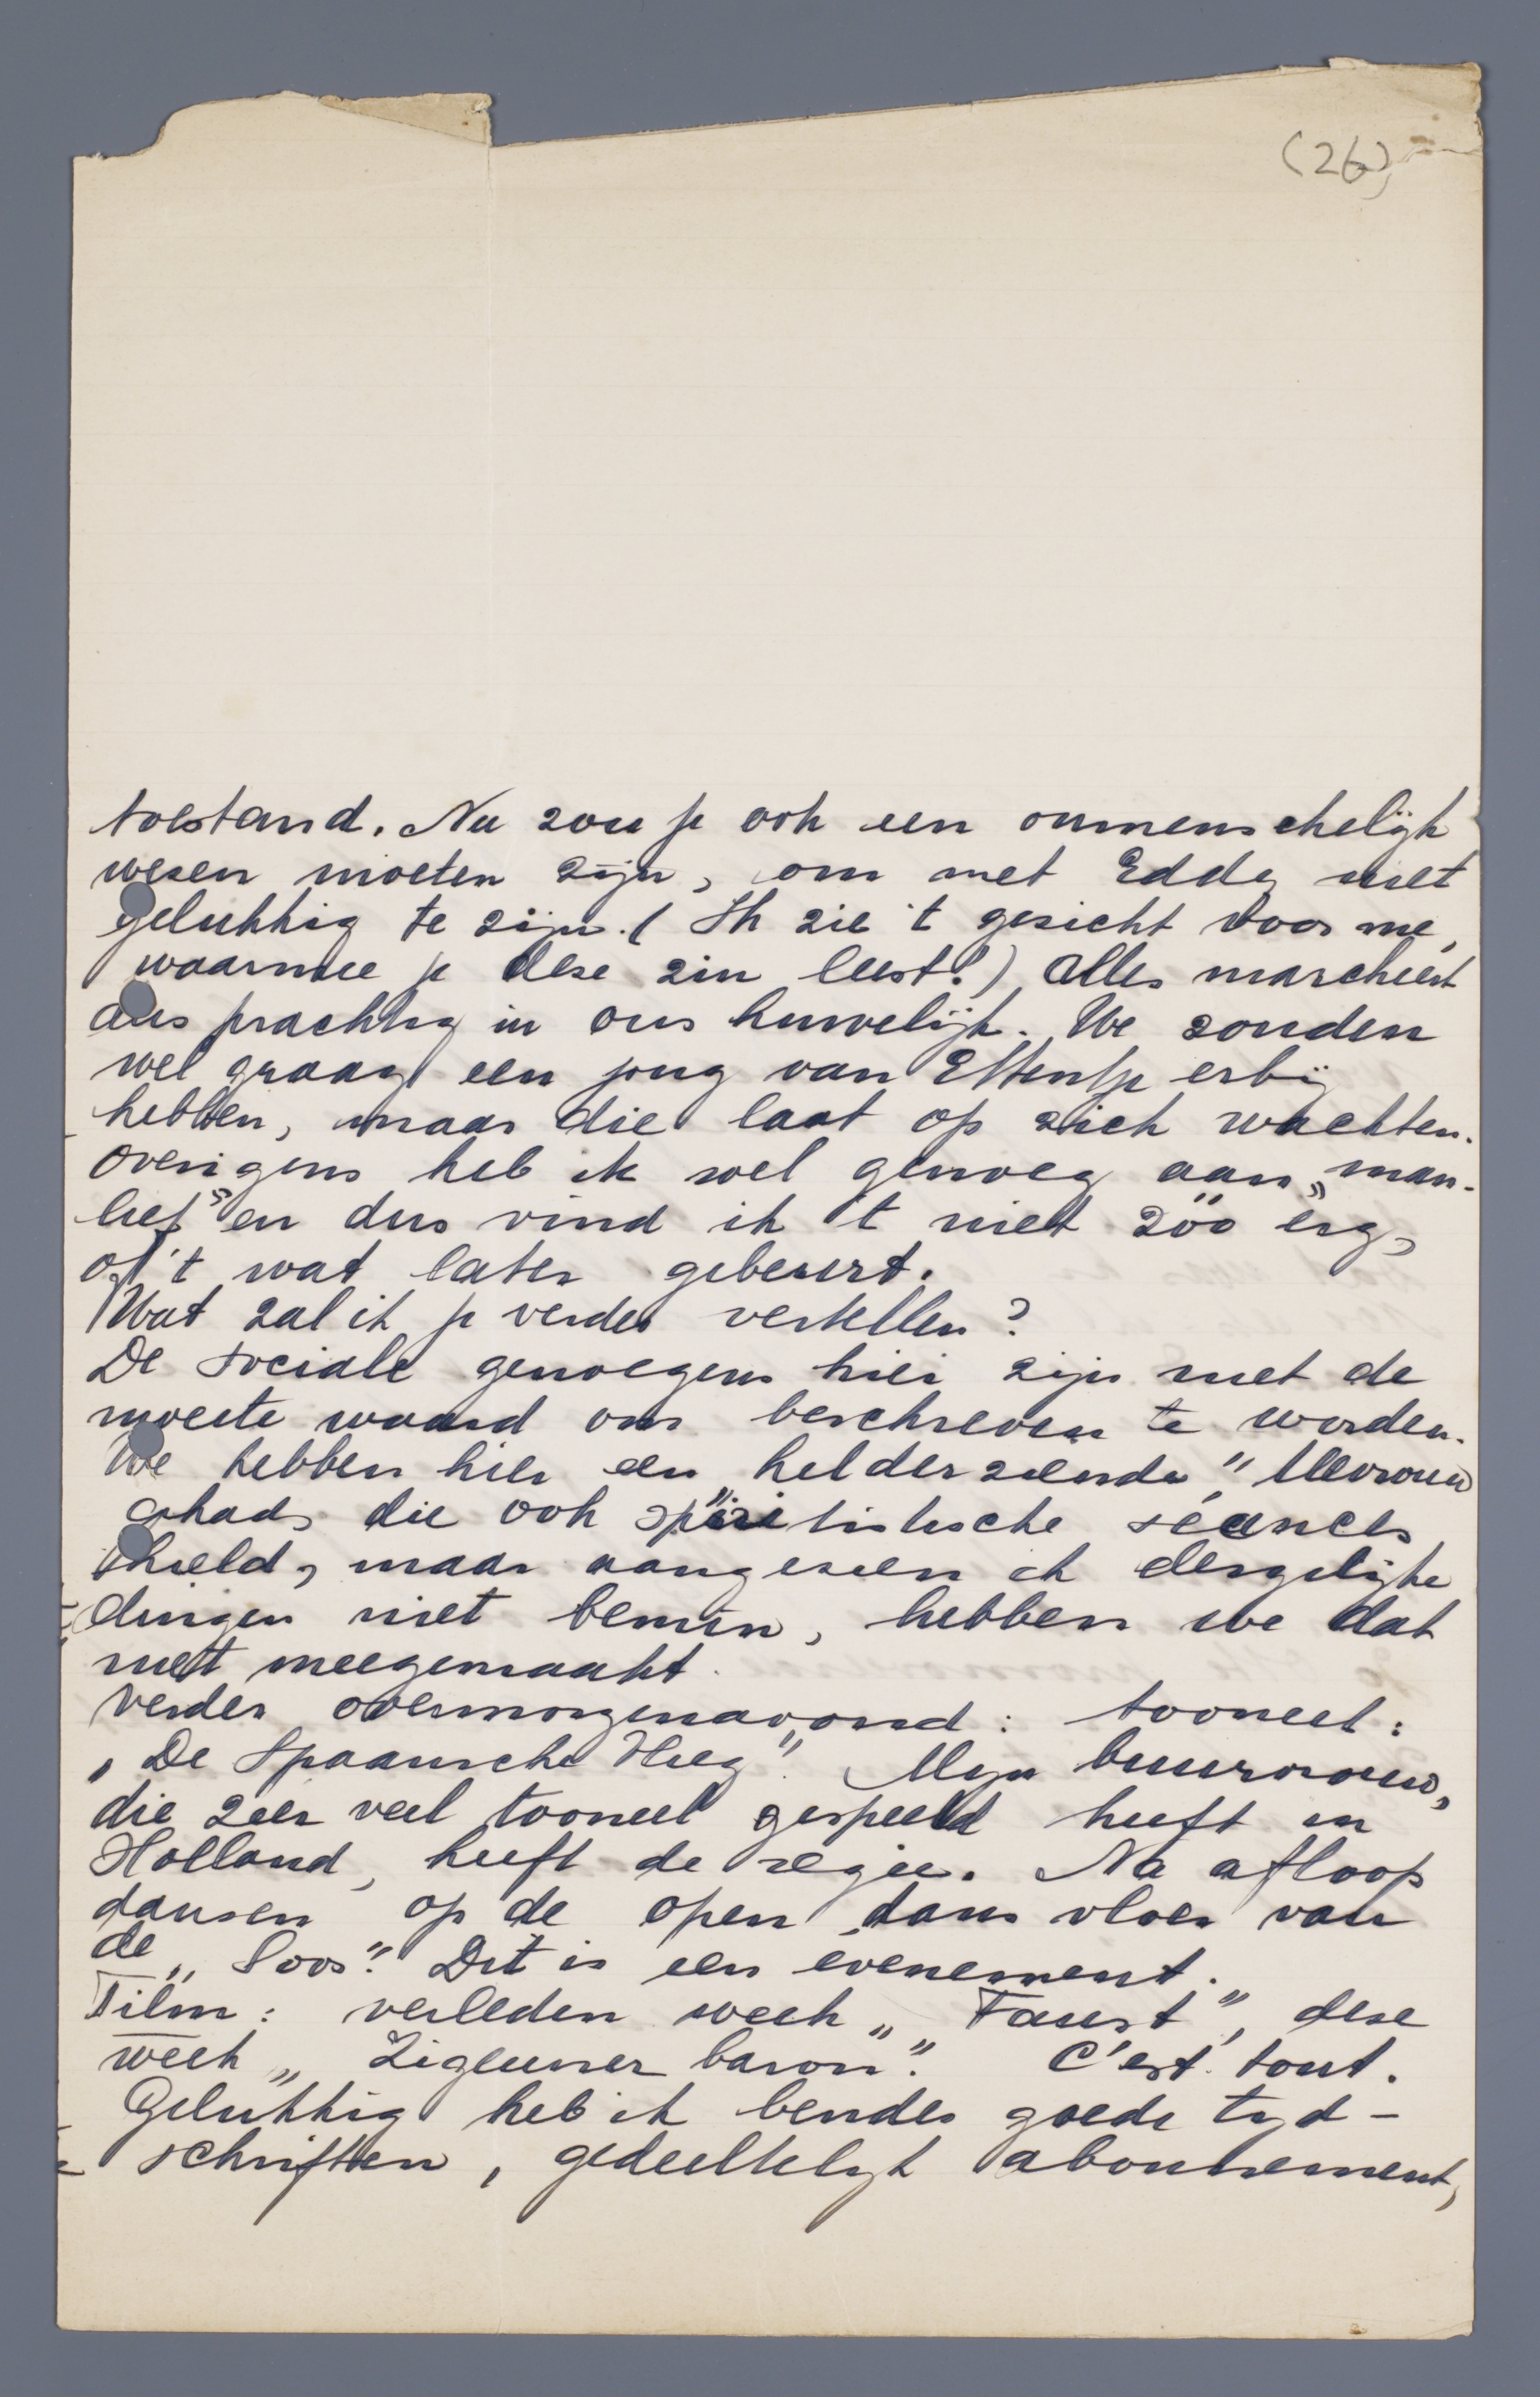 (26)
toestand. Nu zou je ook een onmenschelijk
wezen moeten zijn, om met Eddy niet
gelukkig te zijn. (Ik zie 't gezicht voor me,
waarmee je deze zin leest!) Alles marcheert
dus prachtig in ons huwelijk. We zouden
wel graag een jong van Ettentje erbij
hebben, maar die laat op zich wachten.
Overigens heb ik wel genoeg aan „man-
lief” en dus vind ik 't niet zóó erg,
of 't wat later gebeurt.
Wat zal ik je verder vertellen?
De sociale genoegens hier zijn niet de
moeite waard om beschreven te worden.
We hebben hier een helderziende" Mevrouw
gehad, die ook spiritistische séances
hield, maar aangezien ik dergelijke
dingen niet bemin, hebben we dat
niet meegemaakt.
Verder overmorgenavond: tooneel:
„De Spaansche Vlieg". Mijn buurvrouw,
die zeer veel tooneel gespeeld heeft in
Holland, heeft de regie. Na afloop
dansen op de open dans vloer van
de „Soos". Dit is een évenement.
Film: verleden week „Faust", deze
week „Zigeuner baron". C'est tout.
Gelukkig heb ik bendes goede tijd-
schriften, gedeeltelijk abonnement,